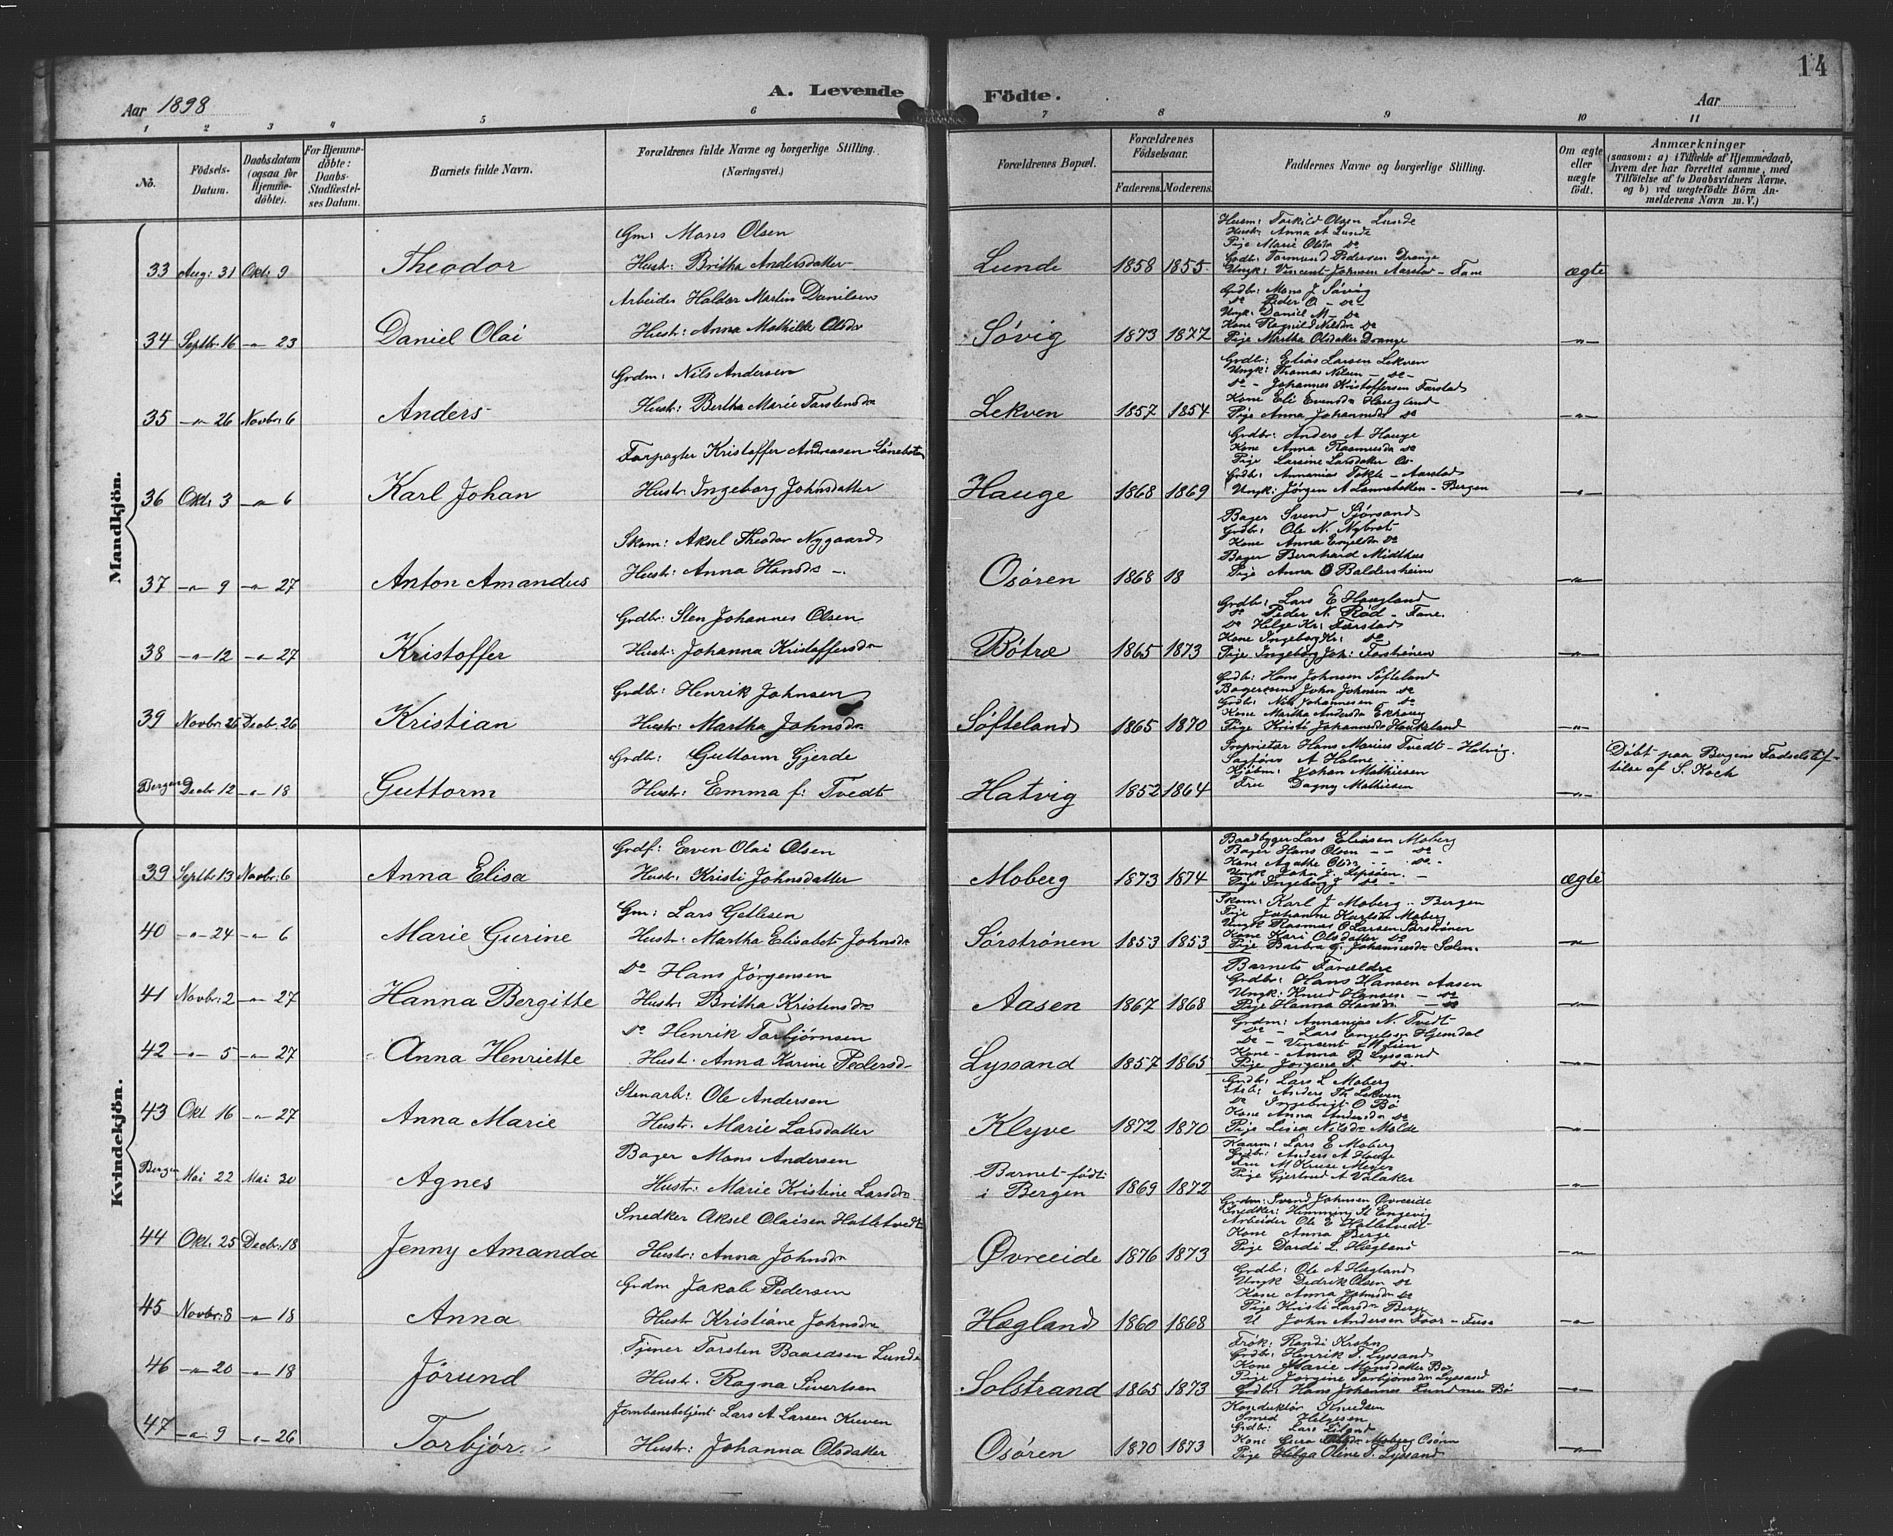 14
Aar 1898
A. Levende Födte.
Aar
1 2 3 4 5 6 7 8 9 10 11
No.
Födsels-Datum.
Daabsdatum (ogsaa for Hjemme-döbte).
For Hjemme-döbte: Daabs-Stadfæstel-ses Datum.
Barnets fulde Navn.
Forældrenes fulde Navne og borgerlige Stilling. (Næringsvei.)
Forældrenes Bopæl.
Forældrenes Födselsaar.
Faderens. Moderens.
Faddernes Navne og borgerlige Stilling.
Om ægte eller uægte födt.
Anmærkninger (saasom: a) i Tilfælde af Hjemmedaab, hvem der har forrettet samme, med Tilföielse af to Daabsvidners Navne, og b) ved uægtefödte Börn An-melderens Navn m. V.)
Mandkjön.
33 Aug: 31 Okt: 9 Theodor
Gm: Mons Olsen
Hust: Britha Andersdatter
Lunde 1858 1855
Husm: Torkild Olsen Lunde
Hust: Anna A Lunde
Pige Marie Olsdr do
Grdbr: Tormund Pedersen Drange
Ungk: Vincent Johnsen Aarstad - Fane
ægte
34 Septbr 16 -"- 23 Daniel Olai
Arbeider Haldor Martin Danilsen
Hust: Anna Mathilde Olsdr
Søvig 1873 1877
Grdbr: Mons J Søvig
do Peder O - do -
Ungk: Daniel M - do
Kone Ragnild Nilsdr do
Pige Martha Olsdatter Drange
-"-
35 -"- 26 Novbr: 6 Anders
Grdm: Nils Andersen
Hust: Bertha Marie Torstensdr
Lekven 1857 1854
Grdbr: Elias Larsen Lekven
Ungk: Thomas Nilsen - do -
do - Johannes Kristoffersen Farstad
Kone Eli Evensdr Haugland
Pige Anna Johannesdr do
-"-
36 Okt: 3 -"- 6 Karl Johan
Forpagter Kristoffer Andreasen Lønebotn
Hust: Ingeborg Johnsdatter
Hauge 1868 1869
Grdbr: Anders A Hauge
Kone Anna Rasmusdr do
Pige Larsine Larsdatter Os
Grdbr: Annanias Tøkle - Aarstad
Ungk: Jørgen A Lønnebotten - Bergen
-"-
37 -"- 9 -"- 27 Anton Amandus
Skom: Aksel Theodor Nygaard
Hust: Anna Hansdr -
Osøren 1868 18
Bager Svend Sjørsand
Grdbr: Ole N. Nybrot
Kone Anna Engelsdr do
Bager Bernhard Midthus
Pige Anna O Baldersheim
-"-
38 -"- 12 -"- 27 Kristoffer
Grdbr: Sten Johannes Olsen
Hust: Johanna Kristoffersdr
Bøtræ 1865 1873
Grdbr: Lars E Haugland
do Peder N. Rød - Fane
do Helge Kr: Farstad
Kone Ingeborg Kr: do
Pige Ingeborg Joh:
-"-
39 Novbr: 25 Decbr: 26 Kristian
Grdbr: Henrik Johnsen
Hust: Martha Johnsdr
Søfteland 1865 1870
Grdbr: Hans Johnsen Søfteland
John Johnsen do
Grdbr: Nils Johannesen do
Kone Martha Andersdr Ekhaug
Pige Kristi Johannesdr Haukeland
-"-
Bergen Decbr 12 -"- 18 Guttorm
Grdbr: Guttorm Gjerde
Hust: Emma f: Tvedt
Hatvig 1852 1864
Proprietær Hans Marius Tvedt - Hatvig.
Sagfører A Holme
Kjøbm: Johan Mathiesen
Fru Dagny Mathiesen
-"-
Døbt paa Bergens Fødselstif-
telse af S. Koch
Kvindekjön.
39 Septbr 13 Novbr: 6 Anna Elisa
Grdf: Even Olai Olsen
Hust: Kristi Johnsdatter
Moberg 1873 1874
Baadbygger Lars Eliasen Moberg
Bager Hans Olsen - - do
Kone Agathe Olsdr - - do -
Ungk John J. Lyssøen. -
Pige Ingeborg J do -
ægte
40 -"- 24 -"- 6 Marie Gurine
Gm: Lars Getlesen
Hust: Martha Elisabet Johnsdr
Sørstrønen 1853 1853
Skom: Karl J Moberg - Bergen
Pige Johanne Karlsdr Moberg
Ungk Rasmus O Larsen Sørstrønen
Kone Kari Olsdatter do
Pige Barbra G. Johannesdr
-"-
41 Novbr: 2 -"- 27 Hanna Bergitte
do Hans Jørgensen
Hust: Britha Kristensdr
Aasen 1867 1868
Barnets Forældre
Grdbr: Hans Hansen Aasen
Ungk: Knud Hansen - do
Pige Hanna Hansdr - do
-"-
42 -"- 5 -"- 27 Anna Henriette
do Henrik Torbjørnsen
Hust. Anna Karine Pedersd-
Lyssand 1857 1865
Grdm: Annanias N. Tvedt
do - Lars Engelsen Hjemdal
do - Vincent Lien
Kone - Anna P Lyssand
Pige Jørgine T. do.
-"-
43 Okt 16 -"- 27 Anna Marie
Stenarb: Ole Andersen
Hust. Marie Larsdatter
Klyve 1872 1870
Grdbr: Lars L Moberg
Anders Th Lekven
do Ingebrigt O Bø
Kone Anna Andersdr do
Pige Lisia Nilsdr Molde
-"-
Bergen Mai 22 Mai 30 Agnes
Bager Mons Andersen
Hust: Marie Kristine Larsdr
Barnet født
i Bergen 1869 1872
Lars E Moberg
Grdbr: Anders A Hauge
Fru M Kruse Meyer
Pige Gjertrud A Valaker
-"-
44 Okt. 25 Decbr: 18 Jenny Amanda
Snedker Aksel Olaisen Hatletvedt
Hust: Anna Johnsdr
Øvreeide 1876 1873
Grdm: Svend Johnsen Øvreeide
Snedker: Hemming St Engevig
Arbeider Ole E Hatletvedt
Kone Anna Berge
Pige Dordi L. Hægland
-"-
45 Novbr: 8 -"- 18 Anna
Grdm Jakob Pedersen
Hust Kristiane Johnsdr
Hægland 1860 1868
Grdbr: Ole A Hægland
Ungk Didrik Olsen do
Kone Anna Johnsdr do
Pige Kristi Larsdr Berge
U John Andersen - Fuse
-"-
46 -"- 20 -"- 18 Jørund
Tjener Torsten Baardsen Lunde
Hust. Ragna Sivertsen
Solstrand 1865 1873
Frøk: Randi Krohn
Grdbr: Henrik T. Lyssand
Kone Marie Monsdatter Bø
Pige Jørgine Torbjørnsdr Lyssand
Grdbr: Hans Johannes Bø
-"-
47 -"- 9 -"- 26 Torbjør
Jernbanebetjent Lars A Larsen Kuven
Hust: Johanna Olsdatter
Osøren 1870 1873
Konduktør Knudsen
Smed Helgesen
Grdbr: Lars
Kone Gura Moberg Osøren
Pige Helga Oline T. Lyssand
-"-